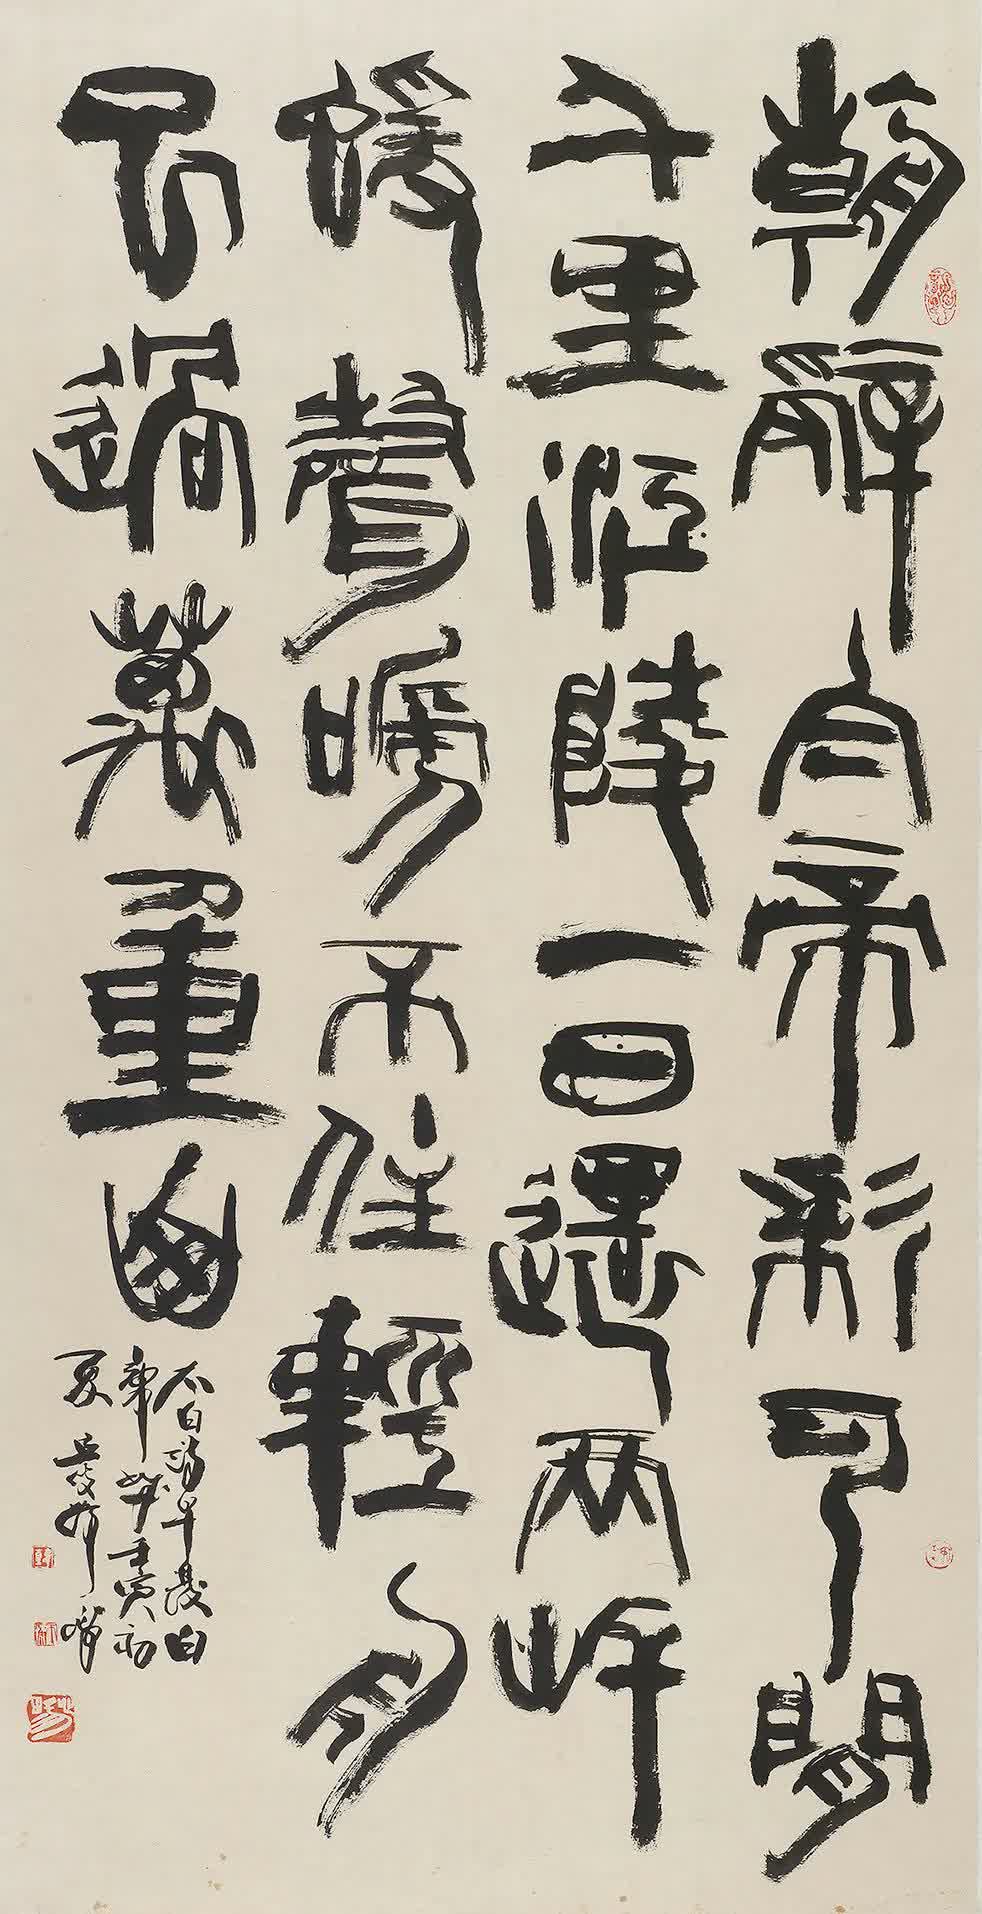 朝辭白帝彩云閒
千里江陵一日還兩岸
蝯聲嗁不住輕舟
已過萬重山
太白詩早發白
帝城壬寅初
夏